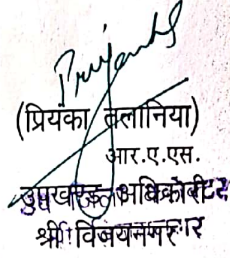 Priyanka
(प्रियंका तलानिया)
आर.ए.एस.
उपखण्ड
श्री विजयनगर